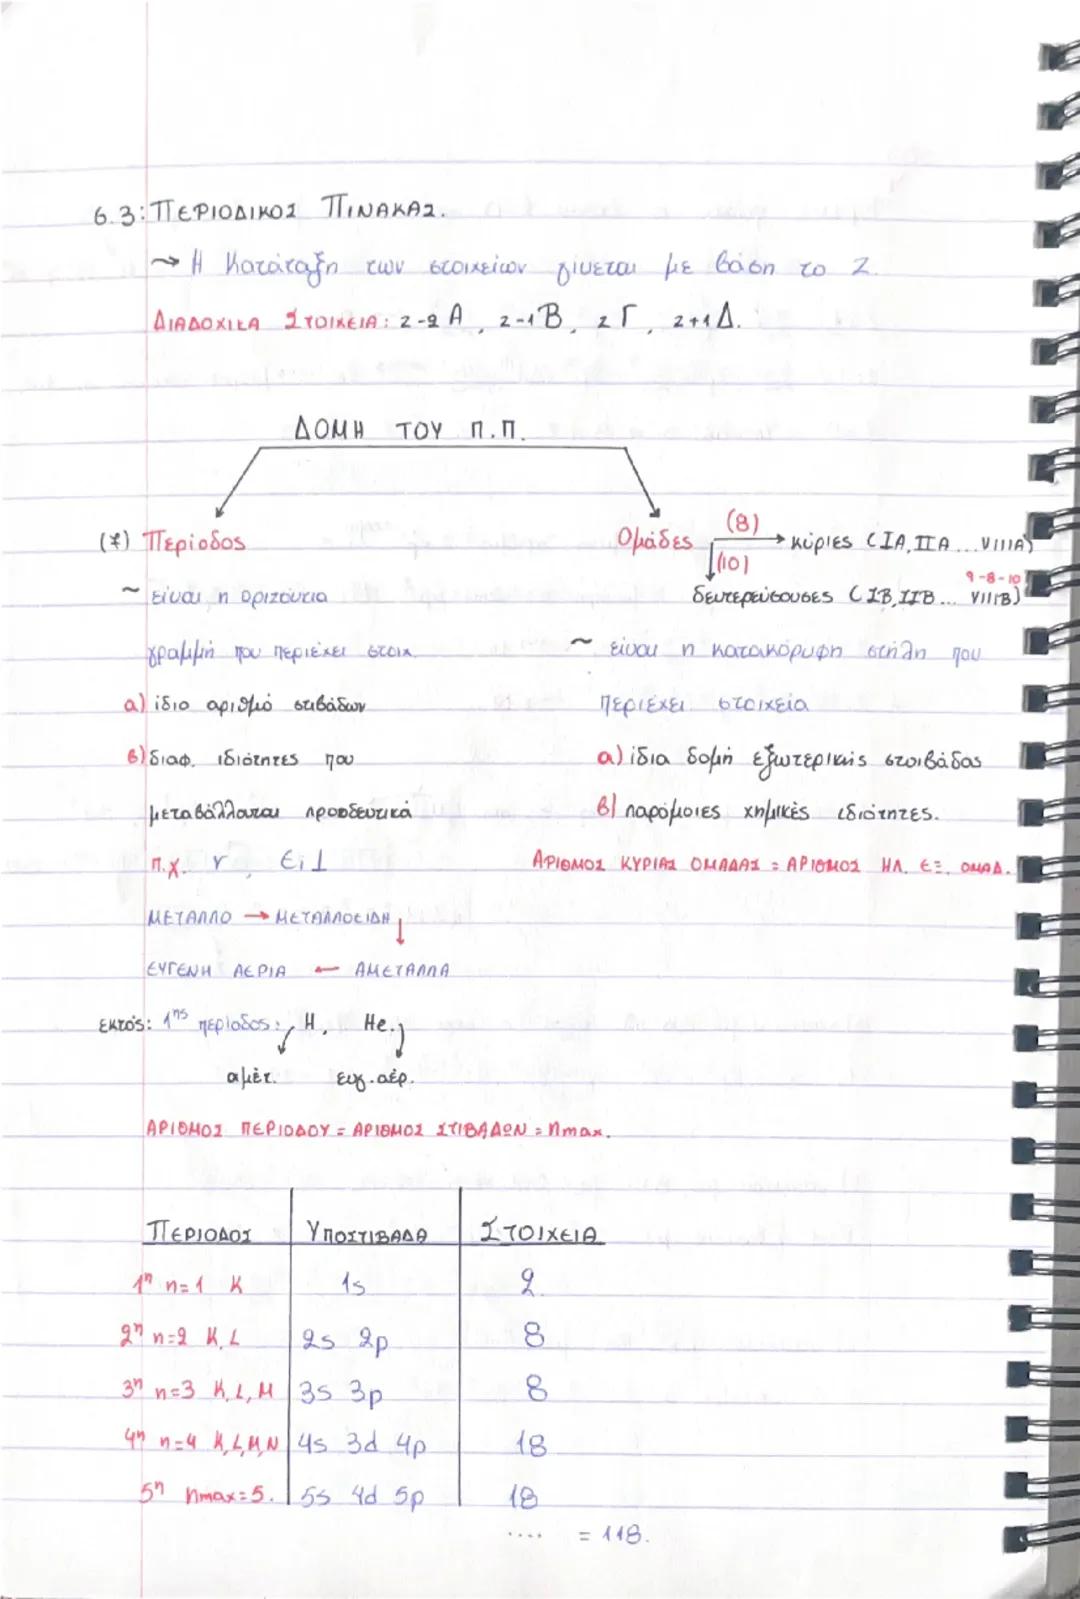 6.3: ΠΕΡΙΟΔΙΚΟΣ ΠΙΝΑΚΑΣ.
~> Η Κατάταξη των στοιχείων γίνεται με βάση το Z.
ΔΙΑΔΟΧΙΚΑ ΣΤΟΙΧΕΙΑ: z-2 Α, z-1 Β, z Γ, z+1 Δ.
ΔΟΜΗ ΤΟΥ Π.Π.
(7) Περίοδος
~ είναι η οριζόντια
γραμμή που περιέχει στοιχ.
α) ίδιο αριθμό στιβάδων
β) διαφ. ιδιότητες που
μεταβάλλονται προοδευτικά
π.χ. r, Ei1
ΜΕΤΑΛΛΟ → ΜΕΤΑΛΛΟΕΙΔΗ ↓
ΕΥΓΕΝΗ ΑΕΡΙΑ ← ΑΜΕΤΑΛΛΑ
εκτός: 1ης περίοδος: H, He.
αμέτ. ευγ. αέρ.
ΑΡΙΘΜΟΣ ΠΕΡΙΟΔΟΥ = ΑΡΙΘΜΟΣ ΣΤΙΒΑΔΩΝ = nmax.
Ομάδες (8) → κύριες (IA, IIA ... VIIIA)
(10) 9-8-10
δευτερεύουσες (IB, IIB ... VIIIB)
~ είναι η κατακόρυφη στήλη που
περιέχει στοιχεία
α) ίδια δομή εξωτερικής στοιβάδας
β) παρόμοιες χημικές ιδιότητες.
ΑΡΙΘΜΟΣ ΚΥΡΙΑΣ ΟΜΑΔΑΣ = ΑΡΙΘΜΟΣ ΗΛ. ΕΞ. ΟΜΑΔ.
ΠΕΡΙΟΔΟΣ ΥΠΟΣΤΙΒΑΔΑ ΣΤΟΙΧΕΙΑ
1η n=1 K 1s 2
2η n=2 K, L 2s 2p 8
3η n=3 K, L, M 3s 3p 8
4η n=4 K, L, M, N 4s 3d 4p 18
5η nmax=5. 5s 4d 5p 18
.... = 118.